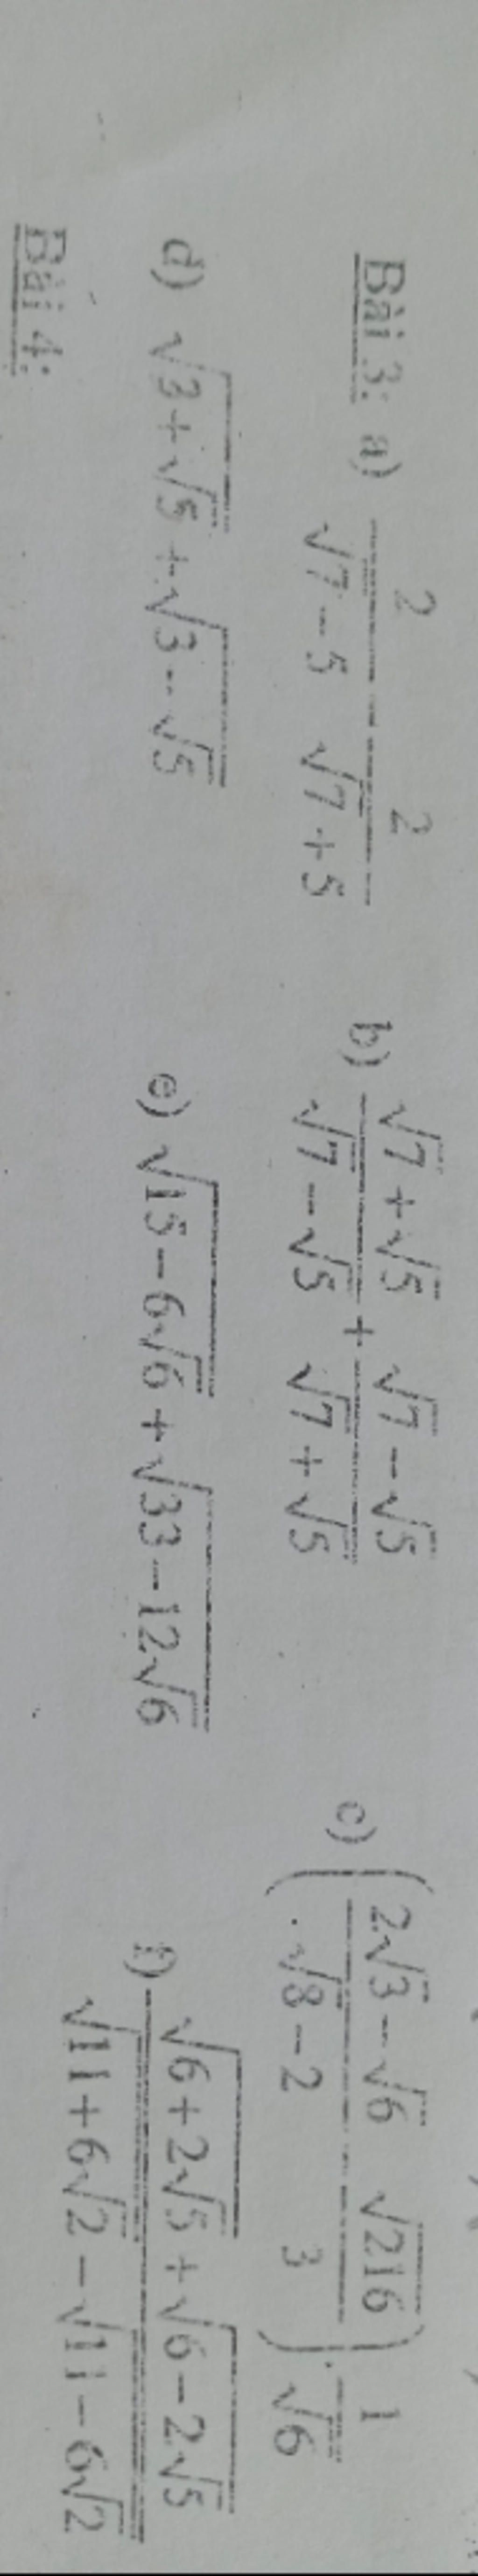 Bài 3: a) 2/(√7 - 5) - 2/(√7 + 5) b) (√7 + √5)/(√7 - √5) + (√7 - √5)/(√7 + √5) c) ((2√3 - √6)/(√8 - 2) - √216/3) · 1/√6
d) √(3 + √5) + √(3 - √5) e) √(15 - 6√6) + √(33 - 12√6) f) (√(6 + 2√5) + √(6 - 2√5))/(√(11 + 6√2) - √(11 - 6√2))
Bài 4: